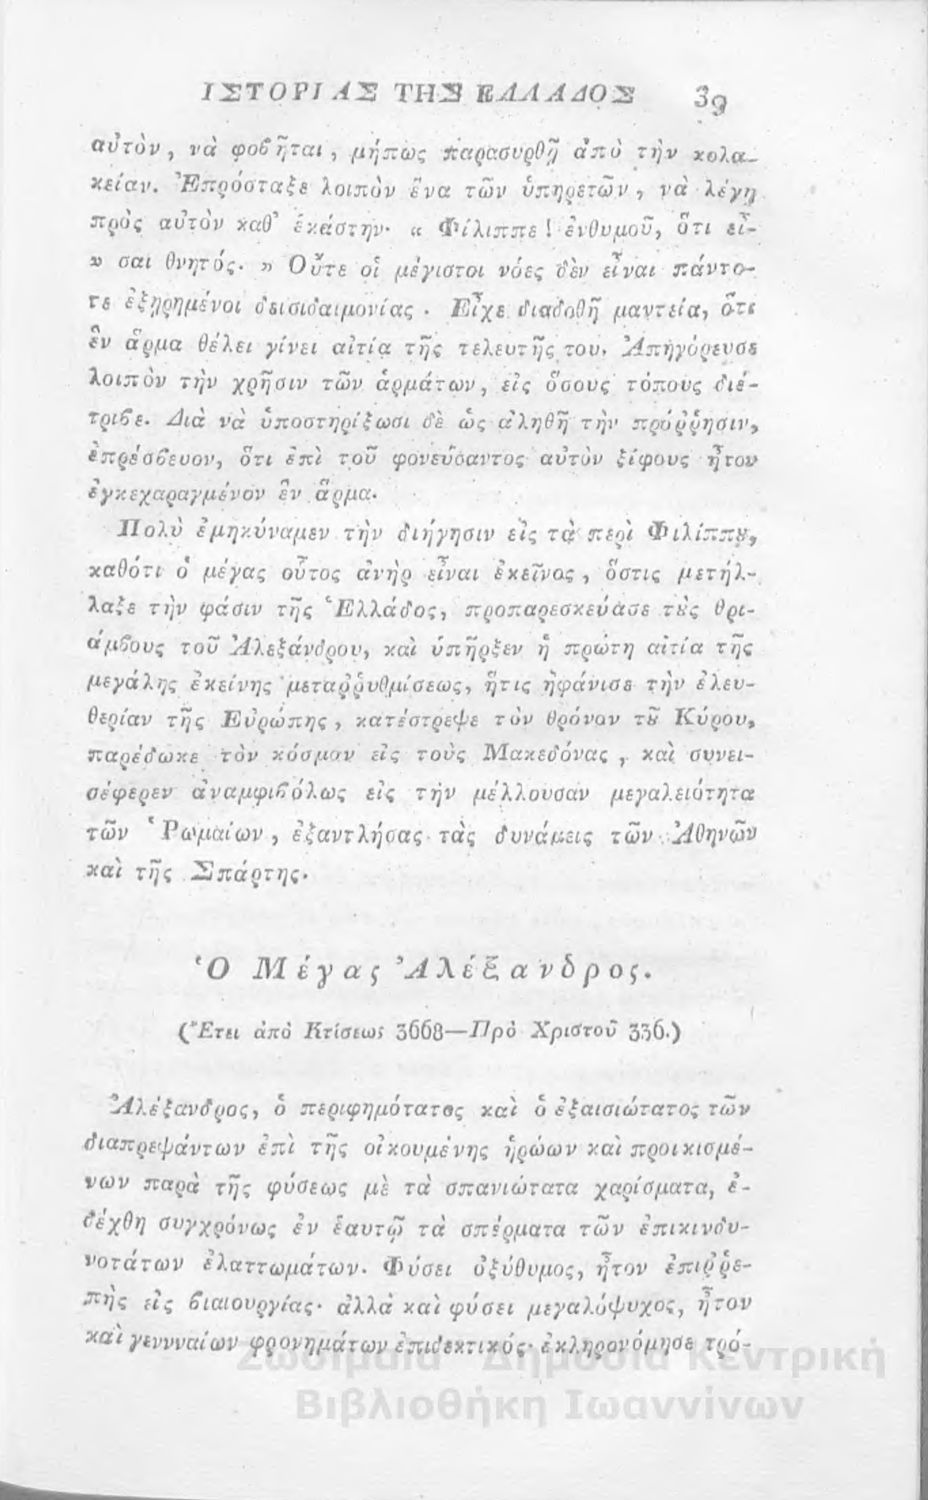 ΙΣΤΟΡΙΑΣ ΤΗΣ ΕΛΛΑΔΟΣ 39
αὐτὸν, νὰ φοβῆται, μήπως παρασυρθῇ ἀπὸ τὴν κολα-
κείαν. Ἐπρόσταξε λοιπὸν ἕνα τῶν ὑπηρετῶν, νὰ λέγῃ
πρὸς αὐτὸν καθ' ἑκάστην· « Φίλιππε! ἐνθυμοῦ, ὅτι εἶ-
» σαι θνητός. » Οὔτε οἱ μέγιστοι νόες δὲν εἶναι πάντο-
τε ἐξῃρημένοι δεισιδαιμονίας. Εἶχε διαδοθῆ μαντεία, ὅτι
ἓν ἅρμα θέλει γίνει αἰτία τῆς τελευτῆς του. Ἀπηγόρευσε
λοιπὸν τὴν χρῆσιν τῶν ἁρμάτων, εἰς ὅσους τόπους διέ-
τριβε. Διὰ νὰ ὑποστηρίξωσι δὲ ὡς ἀληθῆ τὴν πρόῤῥησιν,
ἐπρέσβευον, ὅτι ἐπὶ τοῦ φονεύσαντος αὐτὸν ξίφους ἦτον
ἐγκεχαραγμένον ἓν ἅρμα.
Πολὺ ἐμηκύναμεν τὴν διήγησιν εἰς τὰ περὶ Φιλίππȣ,
καθότι ὁ μέγας οὗτος ἀνὴρ εἶναι ἐκεῖνος, ὅστις μετήλ-
λαξε τὴν φάσιν τῆς Ἑλλάδος, προπαρεσκεύασε τȣς θρι-
άμβους τοῦ Ἀλεξάνδρου, καὶ ὑπῆρξεν ἡ πρώτη αἰτία τῆς
μεγάλης ἐκείνης μεταῤῥυθμίσεως, ἥτις ἠφάνισε τὴν ἐλευ-
θερίαν τῆς Εὐρώπης, κατέστρεψε τὸν θρόνον τȣ͂ Κύρου,
παρέδωκε τὸν κόσμον εἰς τοὺς Μακεδόνας, καὶ συνει-
σέφερεν ἀναμφιβόλως εἰς τὴν μέλλουσαν μεγαλειότητα
τῶν Ῥωμαίων, ἐξαντλήσας τὰς δυνάμεις τῶν Ἀθηνῶν
καὶ τῆς Σπάρτης.
Ὁ Μέγας Ἀλέξανδρος.
(Ἔτει ἀπὸ Κτίσεως 3668—Πρὸ Χριστοῦ 336.)
Ἀλέξανδρος, ὁ περιφημότατος καὶ ὁ ἐξαισιώτατος τῶν
διαπρεψάντων ἐπὶ τῆς οἰκουμένης ἡρώων καὶ προικισμέ-
νων παρὰ τῆς φύσεως μὲ τὰ σπανιώτατα χαρίσματα, ἐ-
δέχθη συγχρόνως ἐν ἑαυτῷ τὰ σπέρματα τῶν ἐπικινδυ-
νοτάτων ἐλαττωμάτων. Φύσει ὀξύθυμος, ἦτον ἐπιῤῥε-
πὴς εἰς βιαιουργίας· ἀλλὰ καὶ φύσει μεγαλόψυχος, ἦτον
καὶ γεννναίων φρονημάτων ἐπιδεκτικός· ἐκληρονόμησε τρό-
Ζωσιμαία Δημόσια Κεντρική
Βιβλιοθήκη Ιωαννίνων